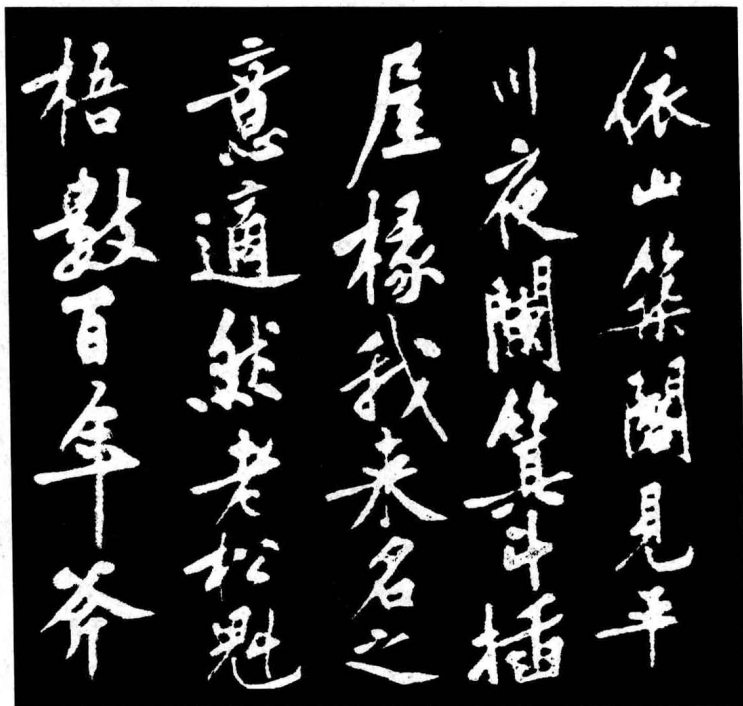 依山築閣見平
川夜闌箕斗插
屋椽我来名之
意適然老松魁
梧數百年斧